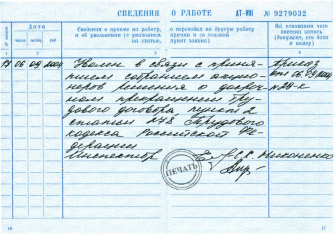 СВЕДЕНИЯ О РАБОТЕ АТ-VIII № 9279032
№ записи
Дата
число месяц год
Сведения о приеме на работу, о переводах на другую работу
и об увольнении (с указанием причин и со ссылкой
на статью, пункт закона)
На основании чего
внесена запись
(документ, его дата
и номер)
1 2 3 4
17 06 09 2004 Уволен в связи с приня- Приказ
тием собранием акцио- от 06.09.2004
неров решения о досроч- №28-к
ном прекращении Тру-
дового договора пункт 2
статьи 278 Трудового
кодекса Российской Фе-
дерации
Инспектор Никоненко
ПЕЧАТЬ
16 17